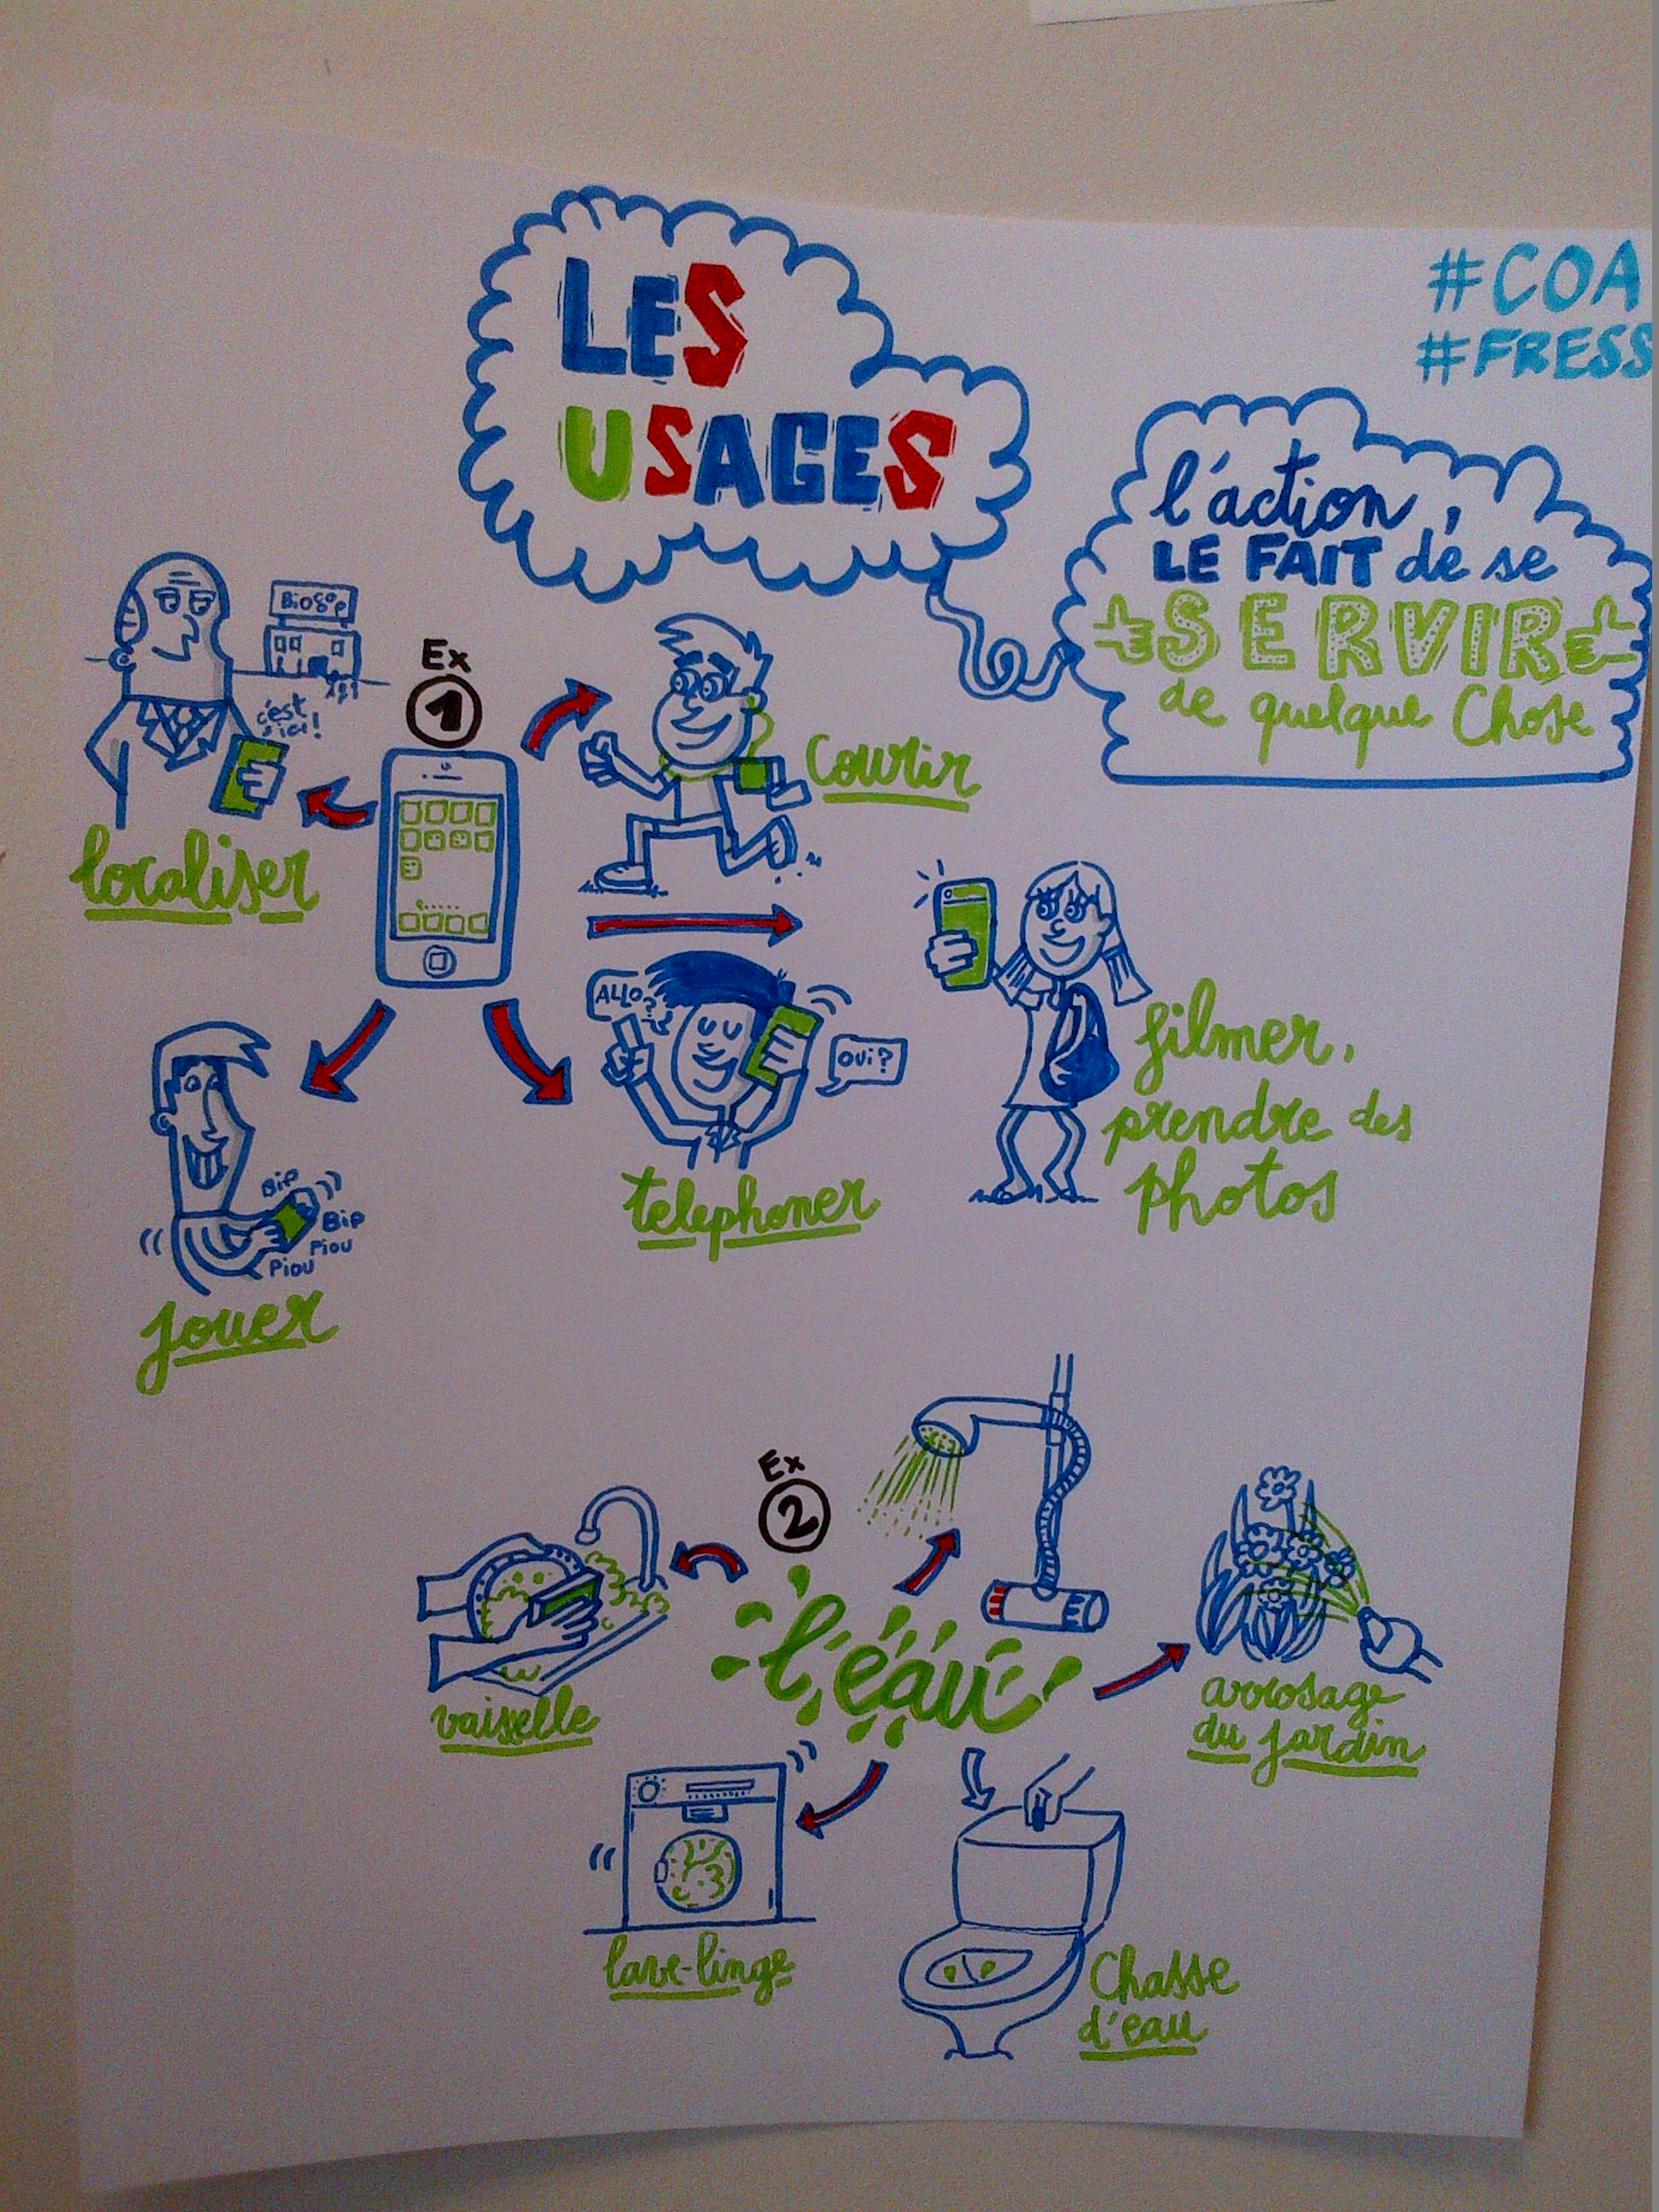 LES
USAGES
#COA
#FRESS
l'action,
LE FAIT de se
SERVIR
de quelque Chose
Biocoop
c'est
ici!
localiser
Ex
1
Courir
ALLO?
OUI?
telephoner
filmer,
prendre des
photos
Bip
Bip
Piou
Piou
jouer
Ex
2
l'eau
vaiselle
arrosage
du jardin
lave-linge
Chasse
d'eau